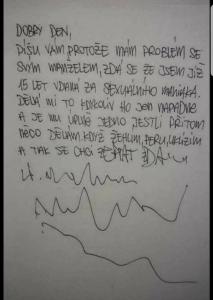 DOBRÝ DEN,
PÍŠU VÁM PROTOŽE MÁM PROBLÉM SE
SVÝM MANŽELEM, ZDÁ SE ŽE JSEM JIŽ
15 LET VDANÁ ZA SEXUÁLNÍHO MANIAKA.
DĚLÁ MI TO KDYKOLIV HO JEN NAPADNE
A JE MU ÚPLNĚ JEDNO JESTLI PŘITOM
NĚCO DĚLÁM. KDYŽ ŽEHLÍM, PERU, UKLÍZÍM
A TAK SE CHCI ZEPTAT ZDA